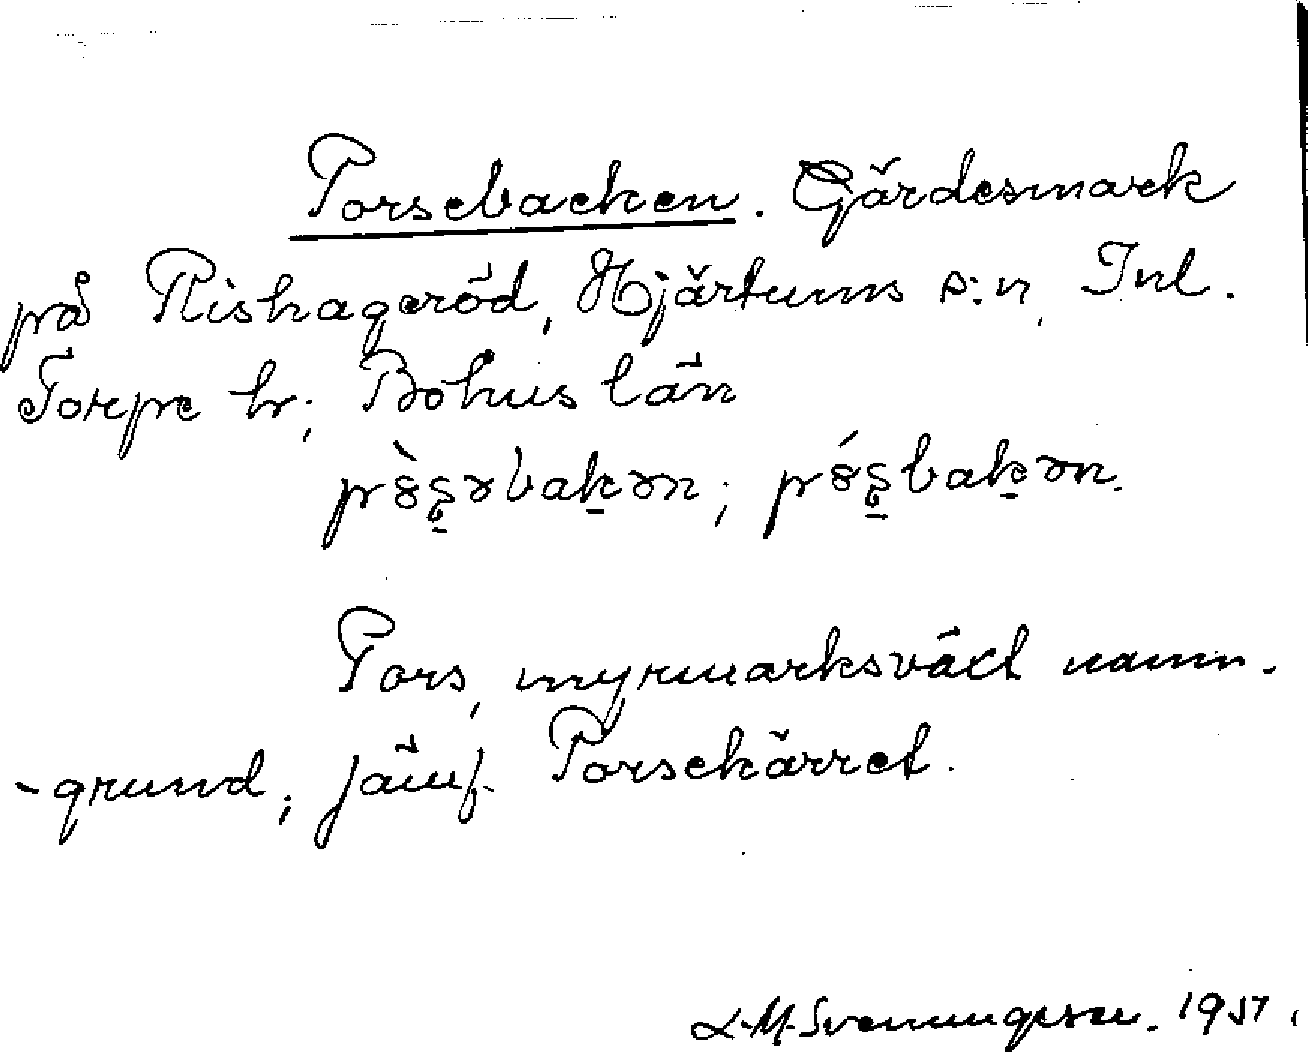 Porsebacken. Gärdesmark
på Rishageröd, Hjärtums s:n, Inl.
Torpe hr; Bohus län
pòșəbakən; póșbakən.
Pors, myrmarksväxt namn-
-grund; jämf. Porsekärret.
L.M. Svenungsson. 1957.